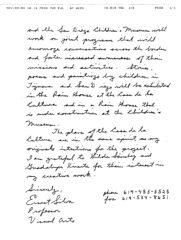 and the San Diego Children's Museum will
work on joint programs that will
encourage conversations across the border
and foster increased awareness of their
missions and activities. Stories,
poems and paintings by children in
Tijuana and San Diego will be exhibited
in the Rain House at the Casa de la
Cultura and in a Rain House that
is under construction at the Children's
Museum.
The plans of the Casa de la
Cultura are in the same spirit as my
original intentions for the project.
I am grateful to
and
Guadalupe for their interest in
my creative work.
Sincerely,
Ernest Silva
Professor
Visual Arts
phone 619-483-5525
fax 619-534-8651